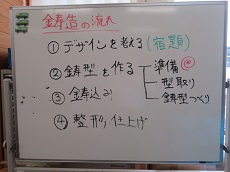 鋳造の流れ
① デザインを考える (宿題)
② 鋳型を作る 準備
型取り
鋳型つくり
③ 鋳込み
④ 整形、仕上げ